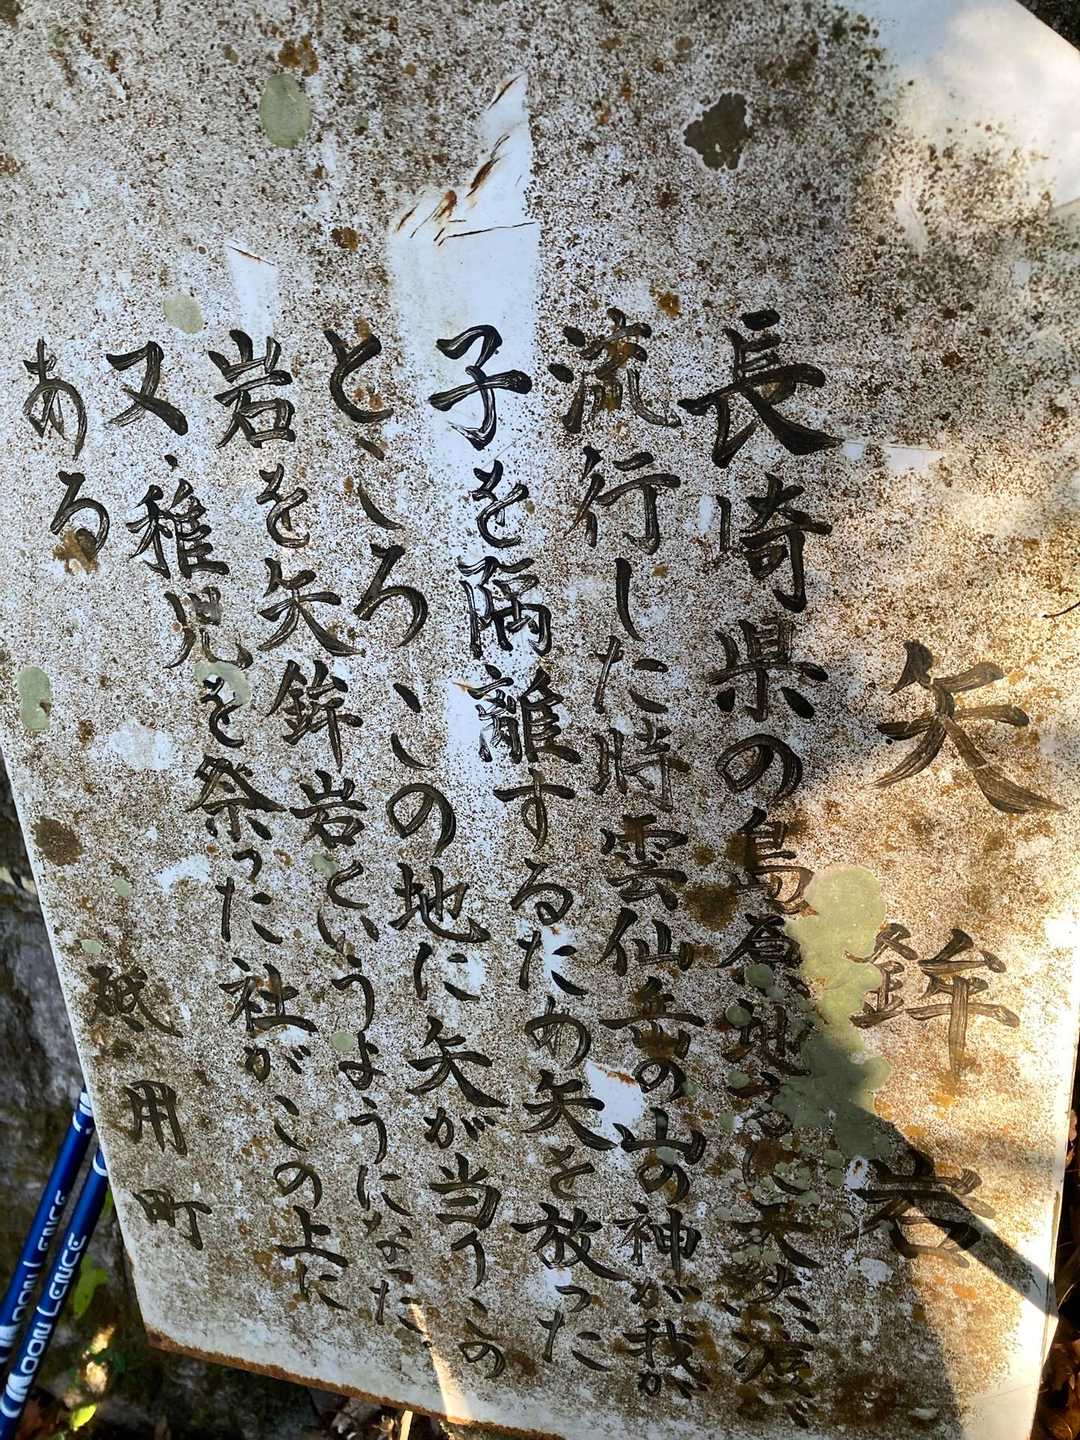 矢鉾岩
長崎県の島原地方に天然痘が
流行した時雲仙岳の山の神が我が
子を隔離するため矢を放った
ところ、この地に矢が当りこの
岩を矢鉾岩というようになった。
又、稚児を祭った社がこの上に
ある
砥用町
MOON LENCE
MOON LENCE